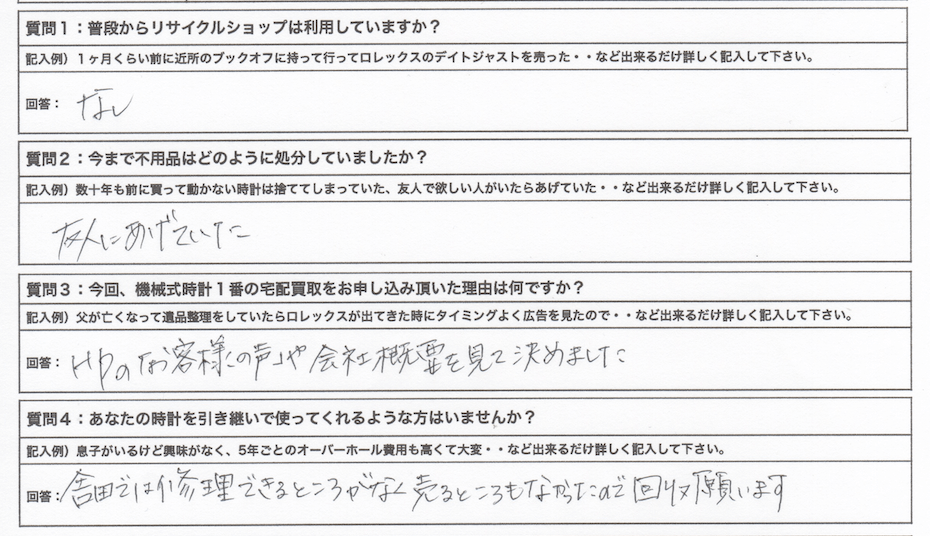 質問1：普段からリサイクルショップは利用していますか？
記入例）1ヶ月くらい前に近所のブックオフに持って行ってロレックスのデイトジャストを売った・・など出来るだけ詳しく記入して下さい。
回答： なし
質問2：今まで不用品はどのように処分していましたか？
記入例）数十年も前に買って動かない時計は捨ててしまっていた、友人で欲しい人がいたらあげていた・・など出来るだけ詳しく記入して下さい。
友人にあげていた
質問3：今回、機械式時計1番の宅配買取をお申し込み頂いた理由は何ですか？
記入例）父が亡くなって遺品整理をしていたらロレックスが出てきた時にタイミングよく広告を見たので・・など出来るだけ詳しく記入して下さい。
回答： HPの「お客様の声」や会社概要を見て決めました
質問4：あなたの時計を引き継いで使ってくれるような方はいませんか？
記入例）息子がいるけど興味がなく、5年ごとのオーバーホール費用も高くて大変・・など出来るだけ詳しく記入して下さい。
回答： 舎田では修理できるところがなく売るところもなかったので回収願います